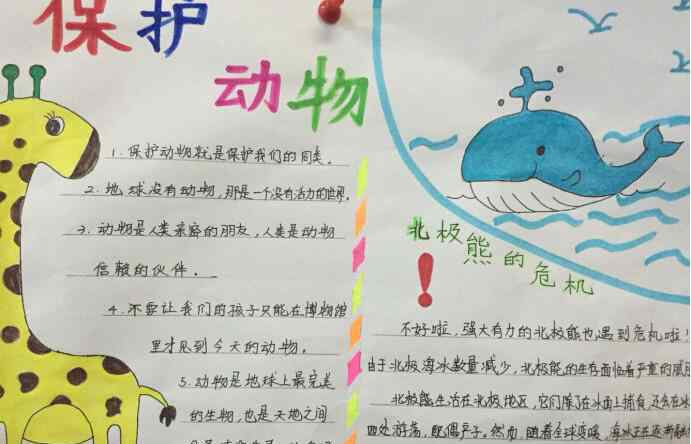 保护
动物
1. 保护动物就是保护我们的同类。
2. 地球没有动物,那是一个没有活力的世界。
3. 动物是人类亲密的朋友,人类是动物
信赖的伙伴。
4. 不要让我们的孩子只能在博物馆
里才见到今天的动物。
5. 动物是地球上最完美
的生物,也是天地之间
北极熊的危机
不好啦,强大有力的北极熊也遇到危机啦!
由于北极海冰数量减少,北极熊的生存面临着严重的威胁
北极熊生活在北极地区,它们除了在冰面上捕食,还会在冰
四处游荡,
然而,随着全球变暖,海冰正在